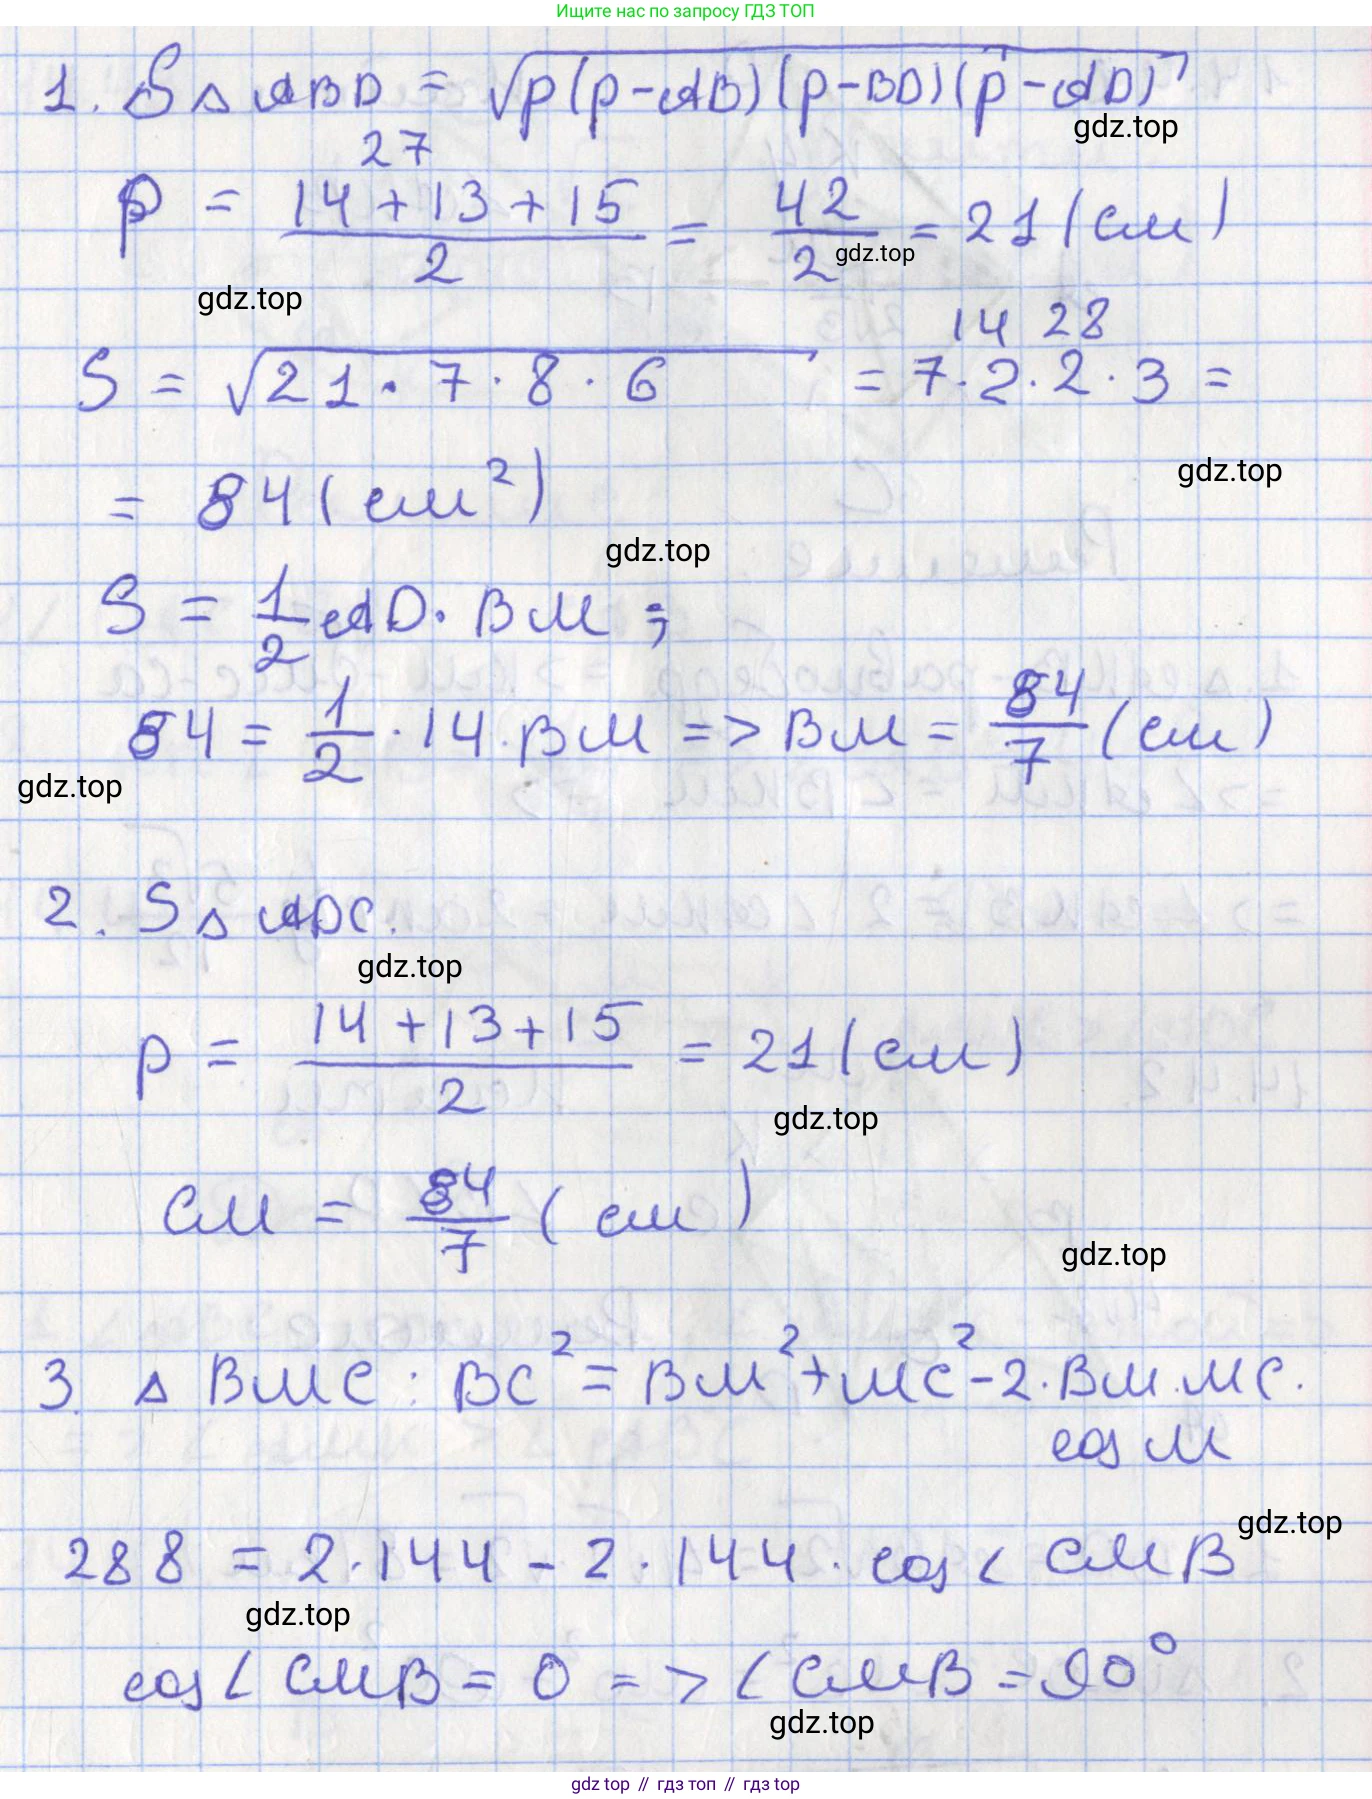 Ищите нас по запросу ГДЗ ТОП
1. S△ABD = √p(p-AB)(p-BD)(p-AD)
gdz.top
27
p = (14+13+15)/2 = 42/2 = 21 (см)
gdz.top
gdz.top
14 28
S = √21·7·8·6 = 7·2·2·3 =
gdz.top
= 84 (см²)
gdz.top
S = 1/2 AD·BM;
84 = 1/2·14·BM => BM = 84/7 (см)
gdz.top
2. S△ADC.
gdz.top
p = (14+13+15)/2 = 21 (см)
gdz.top
CM = 84/7 (см)
gdz.top
3. △BMC: BC² = BM²+MC²-2·BM·MC·
cos M
gdz.top
288 = 2·144 - 2·144·cos∠CMB
gdz.top
cos∠CMB = 0 => ∠CMB = 90°
gdz.top
gdz top // гдз топ // gdz top